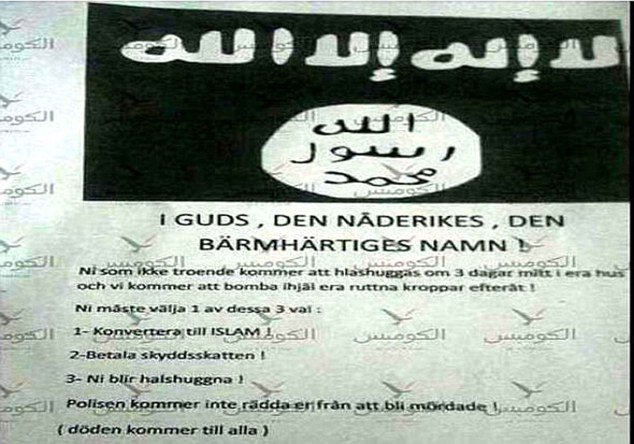 لا إله إلا الله
الله
رسول
محمد
I GUDS , DEN NÅDERIKES , DEN
BÄRMHÄRTIGES NAMN !
Ni som ikke troende kommer att hlashuggas om 3 dagar mitt i era hus
och vi kommer att bomba ihjäl era ruttna kroppar efteråt !
Ni måste välja 1 av dessa 3 val :
1- Konvertera till ISLAM !
2-Betala skyddsskatten !
3- Ni blir halshuggna !
Polisen kommer inte rädda er från att bli mördade !
( döden kommer till alla )
الكومبس